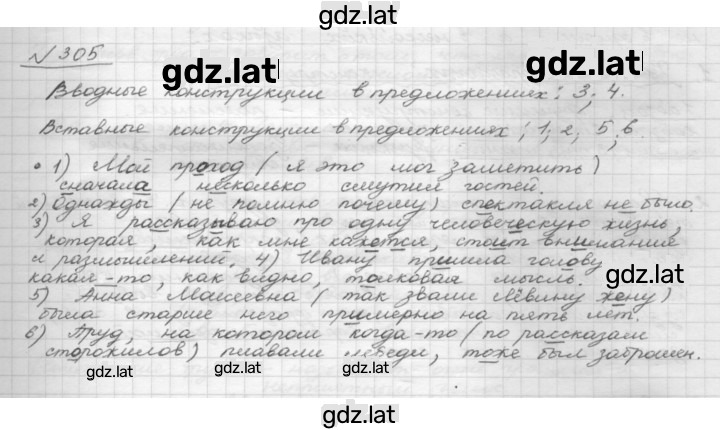 gdz.lat
№ 305
gdz.lat
gdz.lat
Вводные конструкции в предложениях: 3; 4.
Вставные конструкции в предложениях: 1; 2; 5, 6.
• 1) Мой приход (я это мог заметить)
сначала несколько смутил гостей.
2) Однажды (не помню почему) спектакля не было.
3) Я рассказываю про одну человеческую жизнь,
которая, как мне кажется, стоит внимания
и размышлений. 4) Ивану пришла голову
какая-то, как видно, толковая мысль.
5) Анна Моисеевна (так звали Лёвину жену)
была старше него примерно на пять лет.
6) Пруд, на котором когда-то (по рассказам
сторожилов) плавали лебеди, тоже был заброшен.
gdz.lat
gdz.lat
gdz.lat
gdz.lat